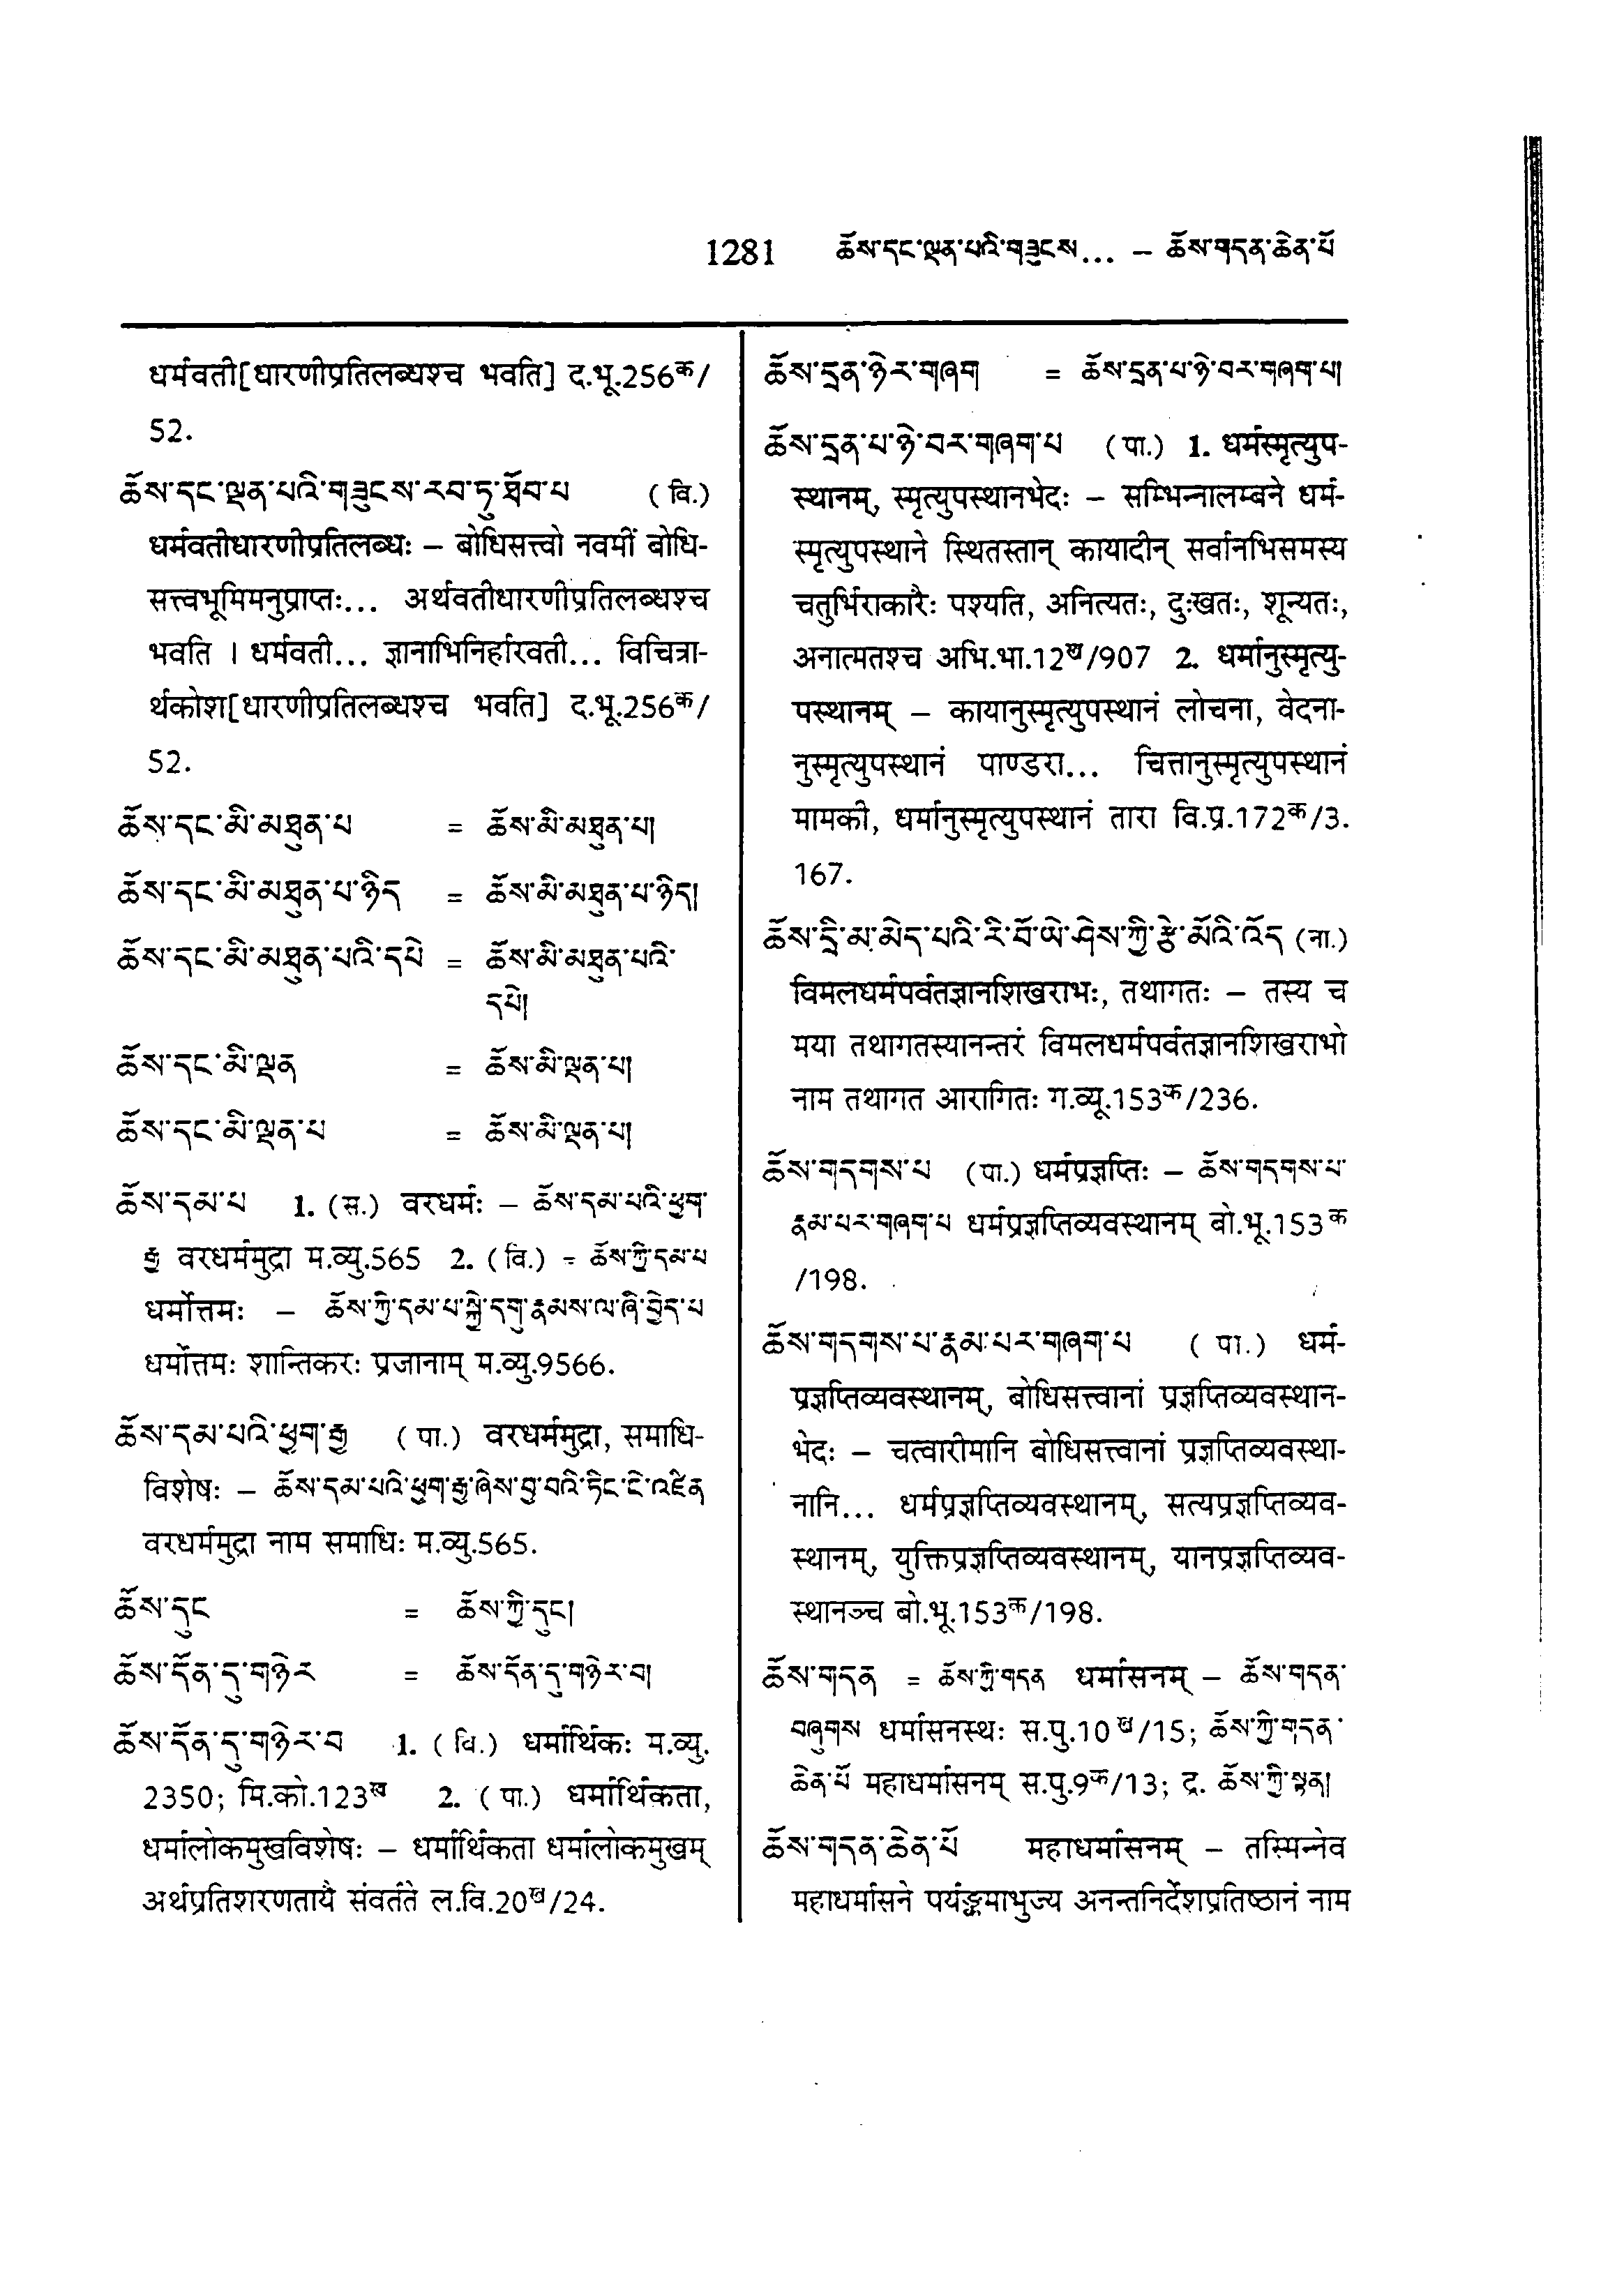 1281 ཆོས་དང་ལྡན་པའི་གཟུངས... – ཆོས་གདན་ཆེན་པོ
धर्मवती[धारणीप्रतिलब्धश्च भवति] द.भू.256क/
52.
ཆོས་དང་ལྡན་པའི་གཟུངས་རབ་ཏུ་ཐོབ་པ (वि.)
धर्मवतीधारणीप्रतिलब्धः – बोधिसत्त्वो नवमीं बोधि-
सत्त्वभूमिमनुप्राप्तः... अर्थवतीधारणीप्रतिलब्धश्च
भवति । धर्मवती... ज्ञानाभिनिर्हारवती... विचित्रा-
र्थकोश[धारणीप्रतिलब्धश्च भवति] द.भू.256क/
52.
ཆོས་དང་མི་མཐུན་པ = ཆོས་མི་མཐུན་པ།
ཆོས་དང་མི་མཐུན་པ་ཉིད = ཆོས་མི་མཐུན་པ་ཉིད།
ཆོས་དང་མི་མཐུན་པའི་དཔེ = ཆོས་མི་མཐུན་པའི་
དཔེ།
ཆོས་དང་མི་ལྡན = ཆོས་མི་ལྡན་པ།
ཆོས་དང་མི་ལྡན་པ = ཆོས་མི་ལྡན་པ།
ཆོས་དམ་པ 1. (स.) वरधर्मः – ཆོས་དམ་པའི་ཕྱག་
རྒྱ वरधर्ममुद्रा म.व्यु.565 2. (वि.) = ཆོས་ཀྱི་དམ་པ
धर्मोत्तमः – ཆོས་ཀྱི་དམ་པ་སྐྱེ་དགུ་རྣམས་ལ་ཞི་བྱེད་པ
धर्मोत्तमः शान्तिकरः प्रजानाम् म.व्यु.9566.
ཆོས་དམ་པའི་ཕྱག་རྒྱ (पा.) वरधर्ममुद्रा, समाधि-
विशेषः – ཆོས་དམ་པའི་ཕྱག་རྒྱ་ཞེས་བྱ་བའི་ཏིང་ངེ་འཛིན
वरधर्ममुद्रा नाम समाधिः म.व्यु.565.
ཆོས་དུང = ཆོས་ཀྱི་དུང།
ཆོས་དོན་དུ་གཉེར = ཆོས་དོན་དུ་གཉེར་བ།
ཆོས་དོན་དུ་གཉེར་བ 1. (वि.) धर्मार्थिकः म.व्यु.
2350; मि.को.123ख 2. (पा.) धर्मार्थिकता,
धर्मालोकमुखविशेषः – धर्मार्थिकता धर्मालोकमुखम्
अर्थप्रतिशरणतायै संवर्तते ल.वि.20ख/24.
ཆོས་དྲན་ཉེར་གཞག = ཆོས་དྲན་པ་ཉེ་བར་གཞག་པ།
ཆོས་དྲན་པ་ཉེ་བར་གཞག་པ (पा.) 1. धर्मस्मृत्युप-
स्थानम्, स्मृत्युपस्थानभेदः – सम्भिन्नालम्बने धर्म-
स्मृत्युपस्थाने स्थितस्तान् कायादीन् सर्वानभिसमस्य
चतुर्भिराकारैः पश्यति, अनित्यतः, दुःखतः, शून्यतः,
अनात्मतश्च अभि.भा.12ख/907 2. धर्मानुस्मृत्यु-
पस्थानम् – कायानुस्मृत्युपस्थानं लोचना, वेदना-
नुस्मृत्युपस्थानं पाण्डरा... चित्तानुस्मृत्युपस्थानं
मामकी, धर्मानुस्मृत्युपस्थानं तारा वि.प्र.172क/3.
167.
ཆོས་དྲི་མ་མེད་པའི་རི་བོ་ཡེ་ཤེས་ཀྱི་རྩེ་མོའི་འོད (ना.)
विमलधर्मपर्वतज्ञानशिखराभः, तथागतः – तस्य च
मया तथागतस्यानन्तरं विमलधर्मपर्वतज्ञानशिखराभो
नाम तथागत आरागितः ग.व्यू.153क/236.
ཆོས་གདགས་པ (पा.) धर्मप्रज्ञप्तिः – ཆོས་གདགས་པ་
རྣམ་པར་གཞག་པ धर्मप्रज्ञप्तिव्यवस्थानम् बो.भू.153क
/198.
ཆོས་གདགས་པ་རྣམ་པར་གཞག་པ (पा.) धर्म-
प्रज्ञप्तिव्यवस्थानम्, बोधिसत्त्वानां प्रज्ञप्तिव्यवस्थान-
भेदः – चत्वारीमानि बोधिसत्त्वानां प्रज्ञप्तिव्यवस्था-
नानि... धर्मप्रज्ञप्तिव्यवस्थानम्, सत्यप्रज्ञप्तिव्यव-
स्थानम्, युक्तिप्रज्ञप्तिव्यवस्थानम्, यानप्रज्ञप्तिव्यव-
स्थानञ्च बो.भू.153क/198.
ཆོས་གདན = ཆོས་ཀྱི་གདན धर्मासनम् – ཆོས་གདན་
བཞུགས धर्मासनस्थः स.पु.10ख/15; ཆོས་ཀྱི་གདན་
ཆེན་པོ महाधर्मासनम् स.पु.9क/13; द्र. ཆོས་ཀྱི་སྟན།
ཆོས་གདན་ཆེན་པོ महाधर्मासनम् – तस्मिन्नेव
महाधर्मासने पर्यङ्कमाभुज्य अनन्तनिर्देशप्रतिष्ठानं नाम